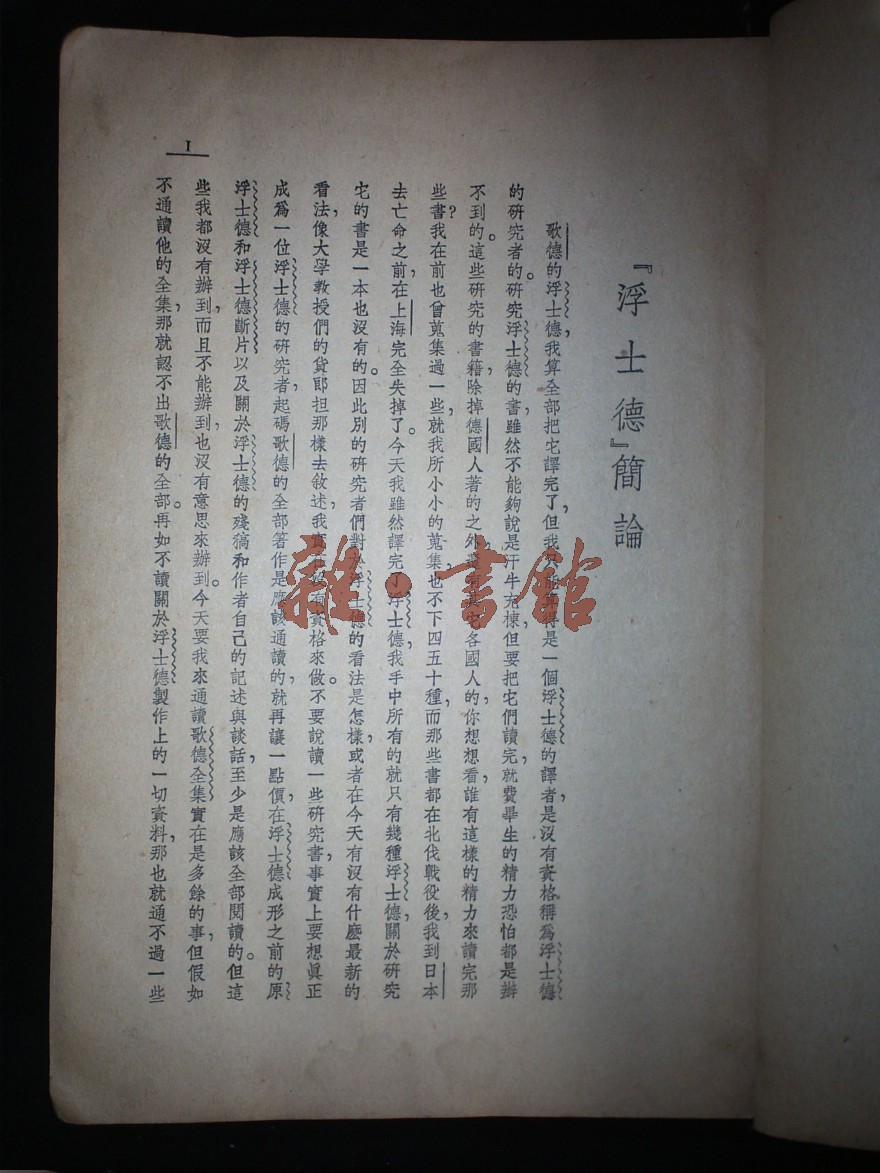 『浮士德』簡論
歌德的浮士德，我算全部把它譯完了，但我只能算得是一個浮士德的譯者，是沒有資格稱爲浮士德
的研究者的。研究浮士德的書，雖然不能夠說是汗牛充棟，但要把它們讀完，就費畢生的精力恐怕都是辦
不到的。這些研究的書籍，除掉德國人著的之外，還有其它各國人的，你想想看，誰有這樣的精力來讀完那
些書？我在前也曾蒐集過一些，就我所小小的蒐集也不下四五十種，而那些書都在北伐戰役後，我到日本
去亡命之前，在上海完全失掉了。今天我雖然譯完了浮士德，我手中所有的就只有幾種浮士德，關於研究
它的書是一本也沒有的。因此別的研究者們對於浮士德的看法是怎樣，或者在今天有沒有什麽最新的
看法，像大學教授們的貨郎担那樣去敘述，我實在沒有資格來做。不要說讀一些研究書，事實上要想眞正
成爲一位浮士德的研究者，起碼歌德的全部著作是應該通讀的，就再讓一點價，在浮士德成形之前的原
浮士德和浮士德斷片以及關於浮士德的殘稿和作者自己的記述與談話，至少是應該全部閱讀的。但這
些我都沒有辦到，而且不能辦到，也沒有意思來辦到。今天要我來通讀歌德全集實在是多餘的事，但假如
不通讀他的全集，那就認不出歌德的全部。再如不讀關於浮士德製作上的一切資料，那也就通不過一些
1
雜·書館